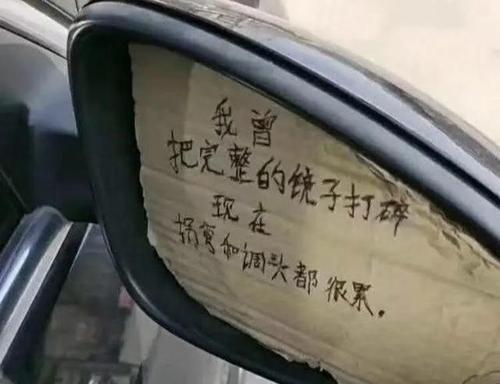 我曾
把完整的镜子打碎
现在
拐弯和调头都很累。